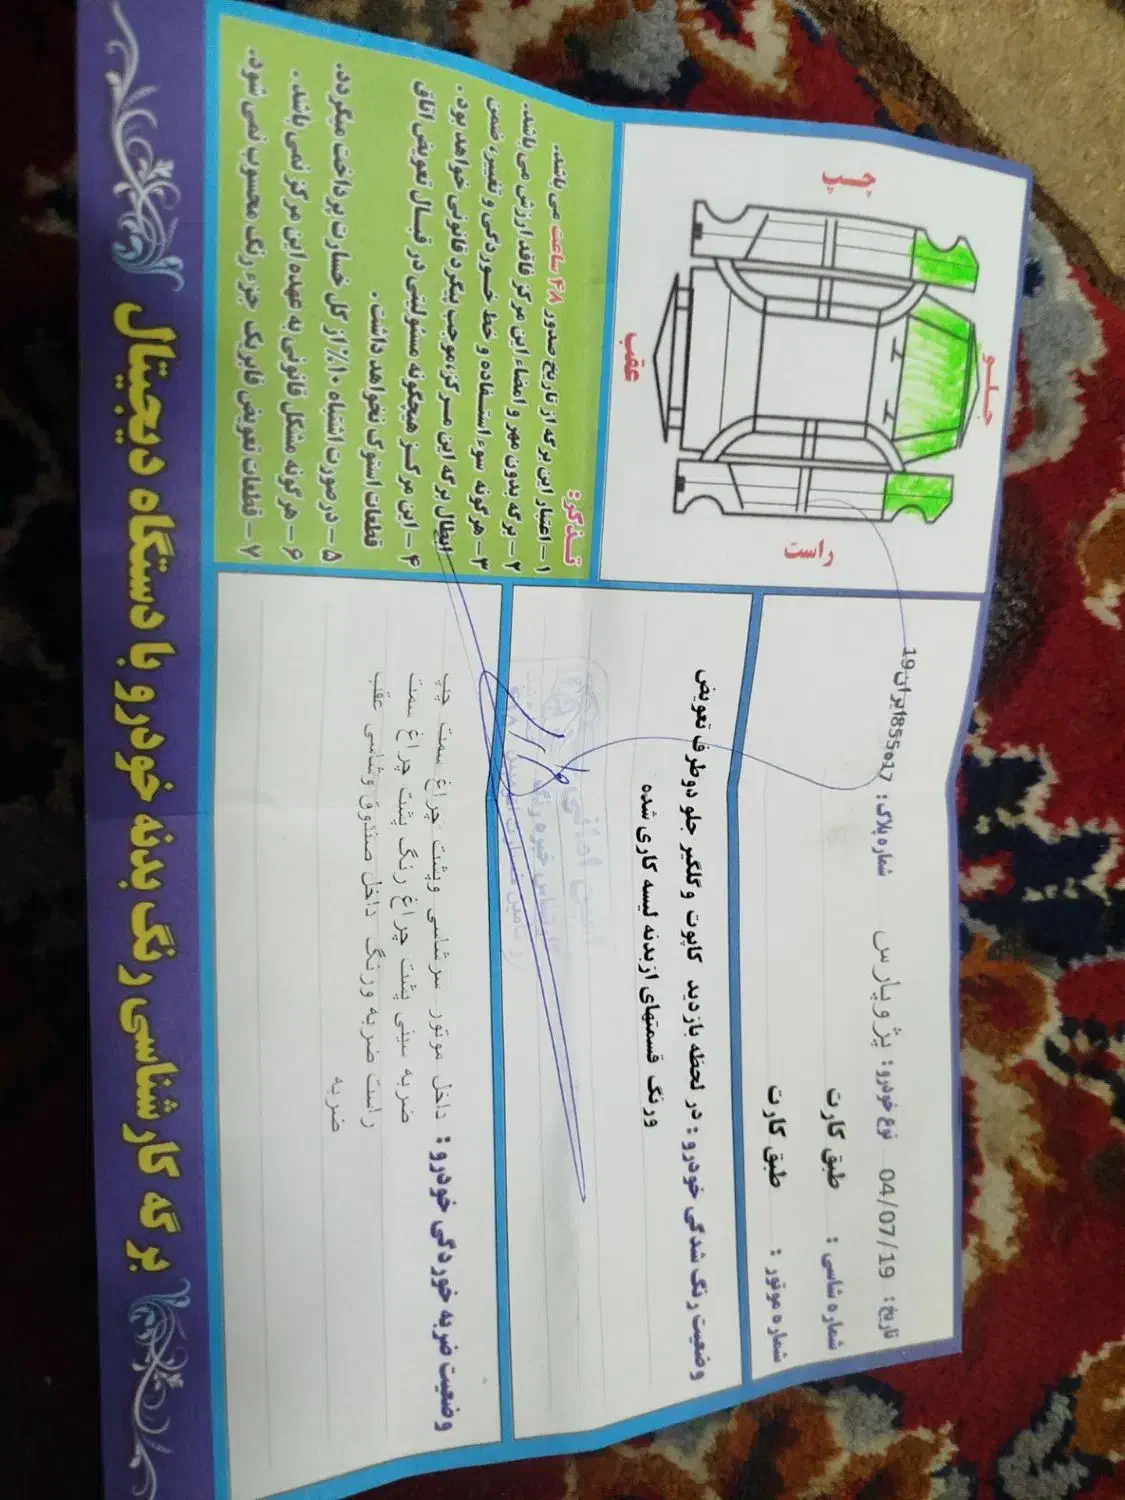 برگه کارشناسی رنگ بدنه خودرو با دستگاه دیجیتال
تاریخ: 04/07/19 نوع خودرو: پژو پارس شماره پلاک: 17ه855ایران19
شماره شاسی: طبق کارت
شماره موتور: طبق کارت
وضعیت رنگ شدگی خودرو: در لحظه بازدید کاپوت وگلگیر جلو دوطرف تعویض
ورنگ قسمتهای ازبدنه لیسه کاری شده
وضعیت ضربه خوردگی خودرو: داخل موتور سرشاسی وپشت چراغ سمت چپ
ضربه سینی پشت چراغ رنگ پشت چراغ سمت
راست ضربه ورنگ داخل صندوق وشاسی عقب
ضربه
جلو
چپ
راست
عقب
تذکر:
۱- اعتبار این برگه از تاریخ صدور ۴۸ ساعت می باشد.
۲- برگه بدون مهر و امضاء این مرکز فاقد ارزش می باشد.
۳- هرگونه سوء استفاده و خط خوردگی و تغییر، ضمن
ابطال برگه این مرکز، موجب پیگرد قانونی خواهد بود.
۴- این مرکز هیچگونه مسئولیتی در قبال تعویض اتاق
قطعات استوک نخواهد داشت.
۵- در صورت اشتباه ۱۰٪ از کل خسارت پرداخت میگردد.
۶- هرگونه مشکل قانونی به عهده این مرکز نمی باشد.
۷- قطعات تعویض فابریک جزء رنگ محسوب نمی شود.